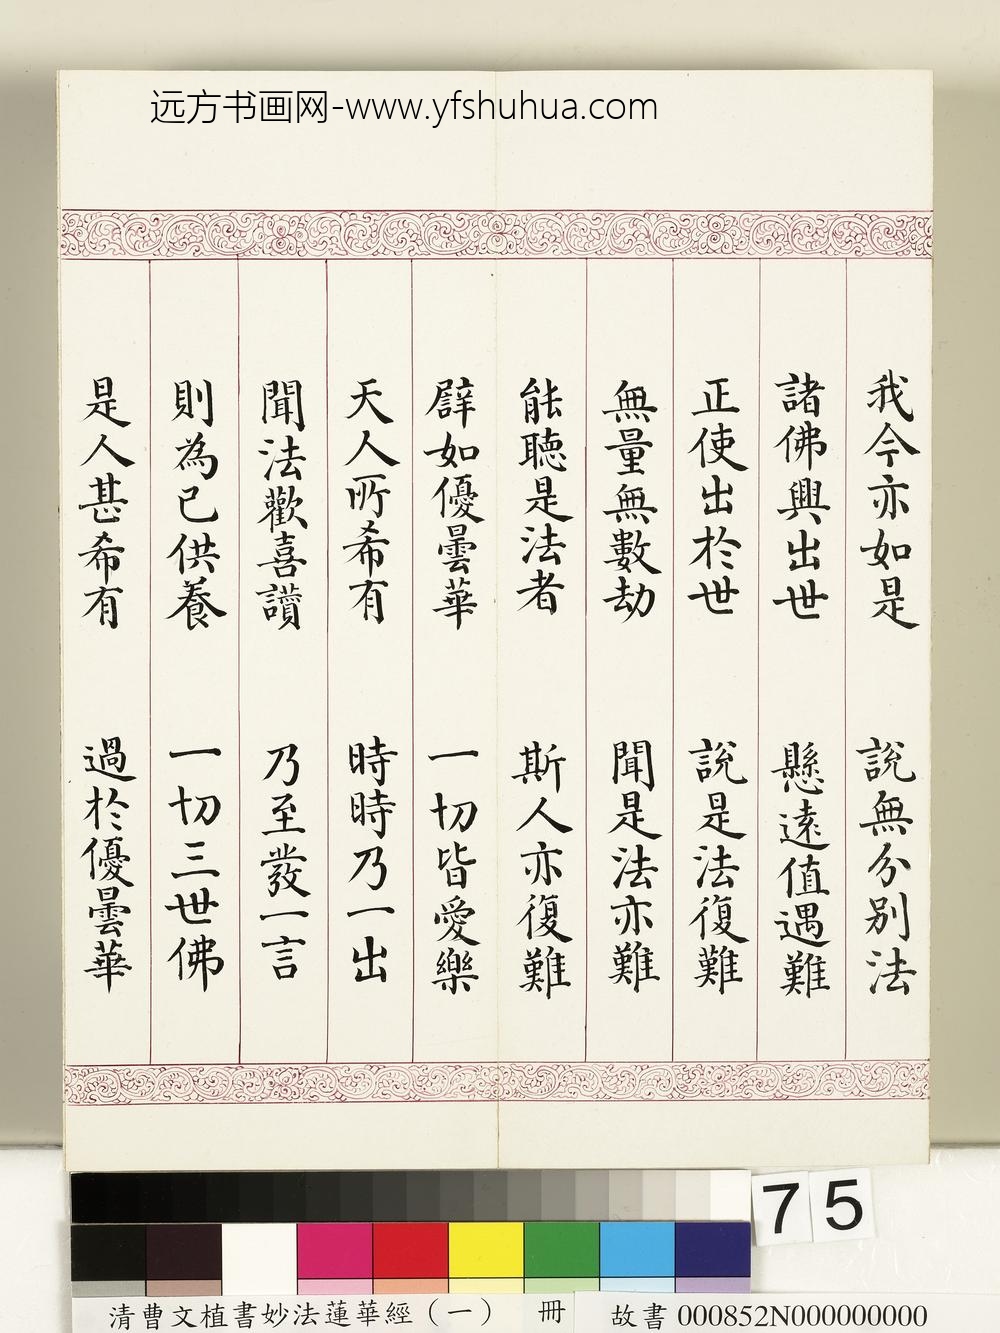 远方书画网-www.yfshuhua.com
我今亦如是 說無分别法
諸佛興出世 懸遠值遇難
正使出於世 說是法復難
無量無數劫 聞是法亦難
能聽是法者 斯人亦復難
辟如優曇華 一切皆愛樂
天人所希有 時時乃一出
聞法歡喜讃 乃至發一言
則為已供養 一切三世佛
是人甚希有 過於優曇華
75
清曹文植書妙法蓮華經（一） 冊 故書 000852N000000000